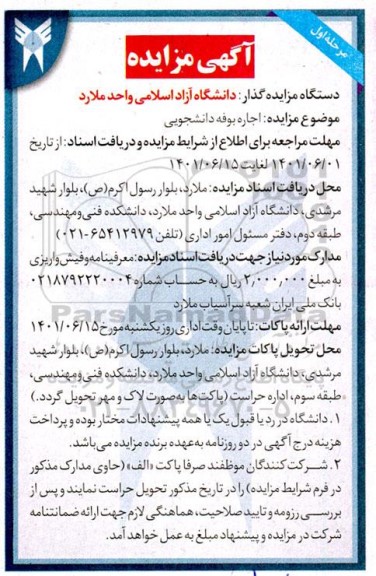 مرحله اول
آگهی مزایده
دستگاه مزایده گذار: دانشگاه آزاد اسلامی واحد ملارد
موضوع مزایده: اجاره بوفه دانشجویی
مهلت مراجعه برای اطلاع از شرایط مزایده و دریافت اسناد: از تاریخ
۱۴۰۱/۰۶/۰۱ لغایت ۱۴۰۱/۰۶/۱۵
محل دریافت اسناد مزایده: ملارد، بلوار رسول اکرم(ص)، بلوار شهید
مرشدی، دانشگاه آزاد اسلامی واحد ملارد، دانشکده فنی‌ومهندسی،
طبقه دوم، دفتر مسئول امور اداری (تلفن ۶۵۴۱۲۹۷۹-۰۲۱)
مدارک مورد نیاز جهت دریافت اسناد مزایده: معرفینامه و فیش واریزی
به مبلغ ۲,۰۰۰,۰۰۰ ریال به حساب شماره ۰۲۱۸۷۹۲۲۲۰۰۰۴
بانک ملی ایران شعبه سرآسیاب ملارد
مهلت ارائه پاکات: تا پایان وقت اداری روز یکشنبه مورخ ۱۴۰۱/۰۶/۱۵
محل تحویل پاکات مزایده: ملارد، بلوار رسول اکرم(ص)، بلوار شهید
مرشدی، دانشگاه آزاد اسلامی واحد ملارد، دانشکده فنی‌ومهندسی،
طبقه سوم، اداره حراست (پاکت‌ها به‌صورت لاک و مهر تحویل گردد.)
۱. دانشگاه در رد یا قبول یک یا همه پیشنهادات مختار بوده و پرداخت
هزینه درج آگهی در دو روزنامه به‌عهده برنده مزایده می‌باشد.
۲. شرکت کنندگان موظفند صرفا پاکت «الف» (حاوی مدارک مذکور
در فرم شرایط مزایده) را در تاریخ مذکور تحویل حراست نمایند و پس از
بررسی رزومه و تایید صلاحیت، هماهنگی لازم جهت ارائه ضمانتنامه
شرکت در مزایده و پیشنهاد مبلغ به عمل خواهد آمد.
ParsNamadData
۰۲۱-۸۸۳۴۹۶۷۰-۵